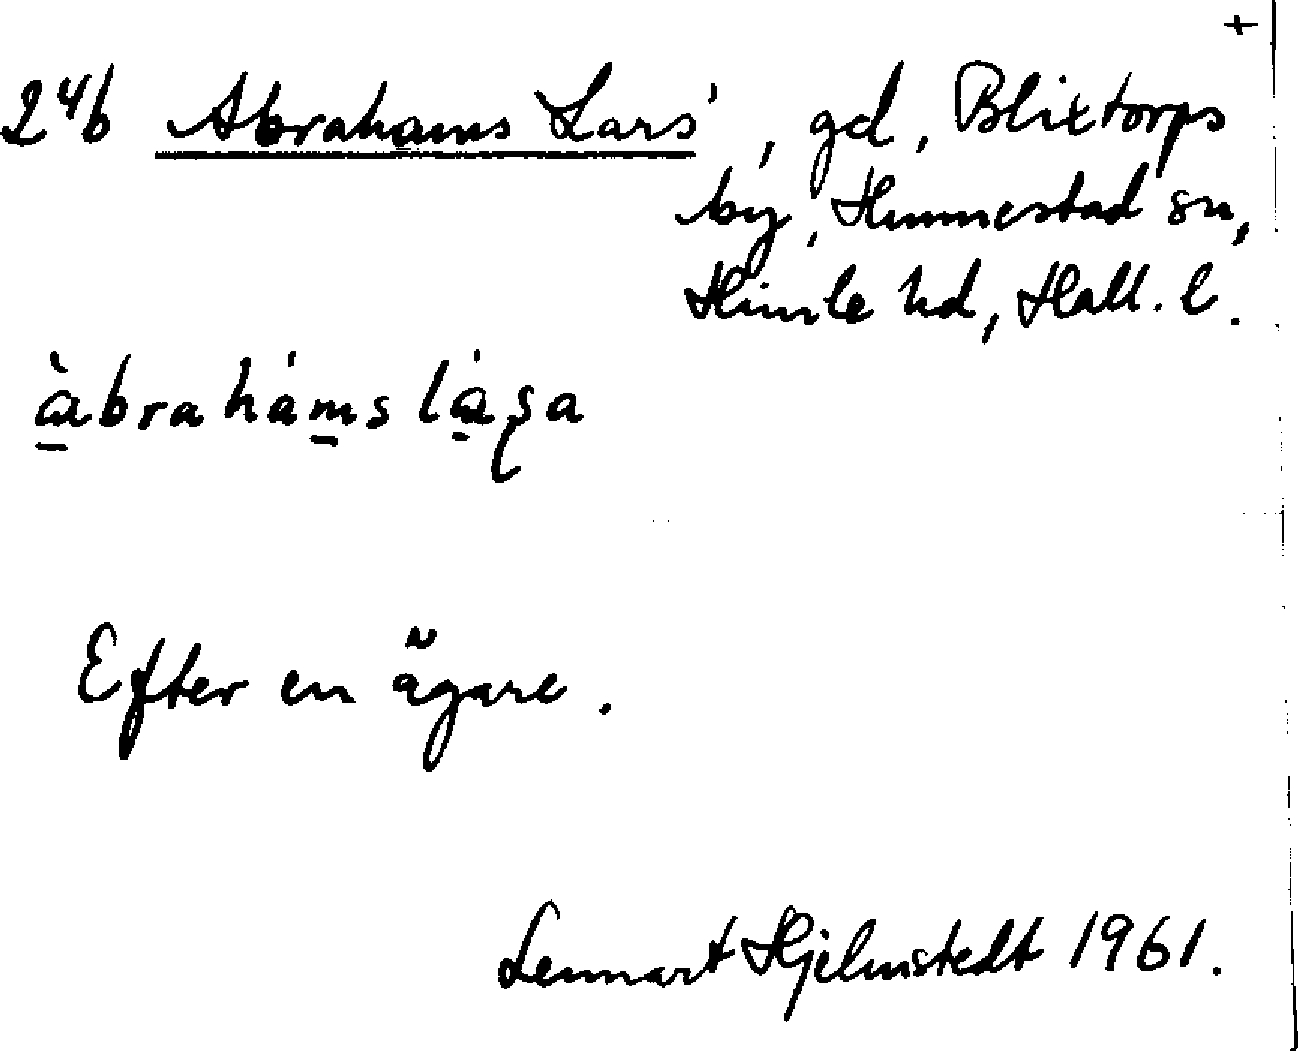 +
2⁴b Abrahams Lars', gd, Blixtorps
by, Hunnestad sn,
Himle hd, Hall. l.
Efter en ägare.
Lennart Hjelmstedt 1961.